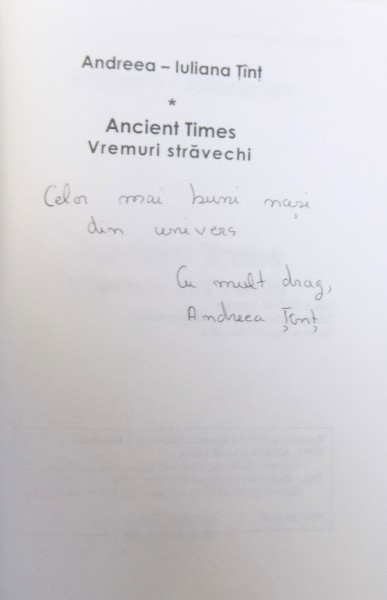 Andreea – Iuliana Țînț
*
Ancient Times
Vremuri străvechi
Celor mai buni nași
din univers
Cu mult drag,
Andreea Țînț